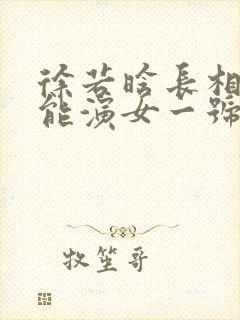 徐若晗長相
能演女一號
牧笙哥